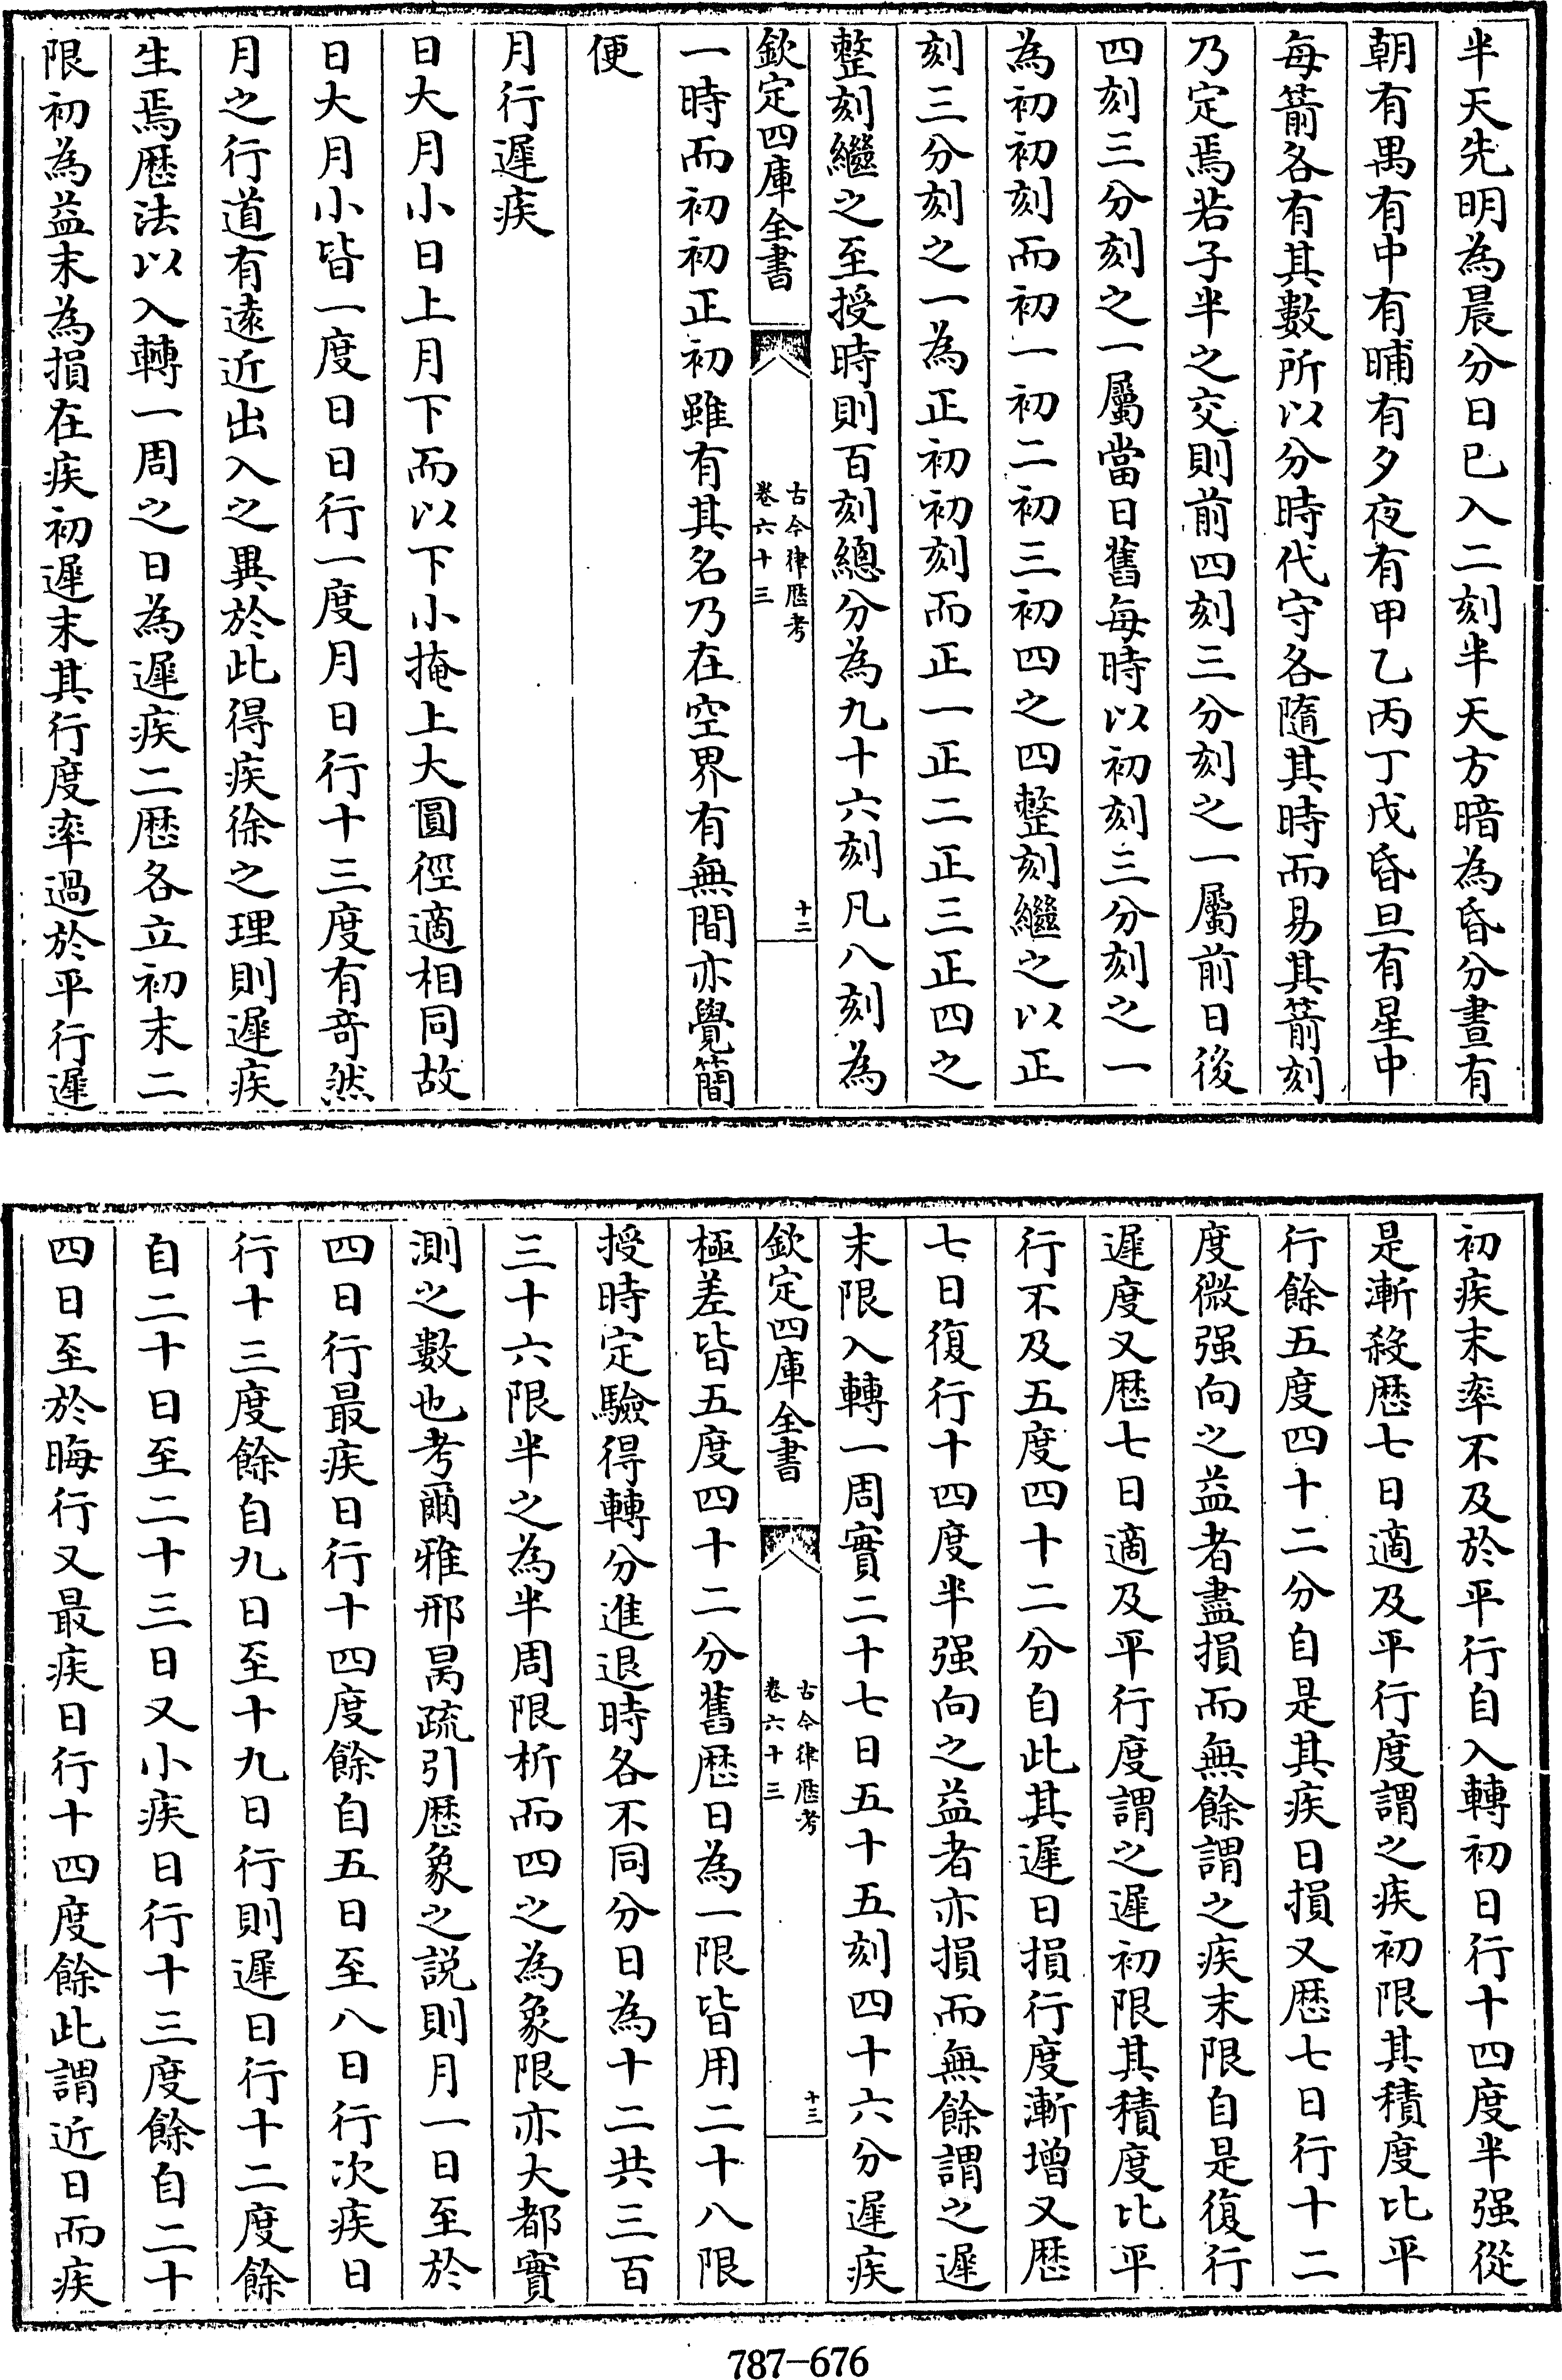 半天先明為晨分日已入二刻半天方暗為昏分晝有
朝有禺有中有晡有夕夜有甲乙丙丁戊昏旦有星中
每箭各有其數所以分時代守各隨其時而易其箭刻
乃定焉若子半之交則前四刻三分刻之一屬前日後
四刻三分刻之一屬當日舊每時以初刻三分刻之一
為初初刻而初一初二初三初四之四整刻繼之以正
刻三分刻之一為正初初刻而正一正二正三正四之
整刻繼之至授時則百刻總分為九十六刻凡八刻為
欽定四庫全書
古今律歴考
卷六十三
十二
一時而初初正初雖有其名乃在空界有無間亦覺簡
便
月行遲疾
日大月小日上月下而以下小掩上大圓徑適相同故
日大月小皆一度日日行一度月日行十三度有竒然
月之行道有遠近出入之異於此得疾徐之理則遲疾
生焉歴法以入轉一周之日為遲疾二歴各立初末二
限初為益末為損在疾初遲末其行度率過於平行遲
初疾末率不及於平行自入轉初日行十四度半强從
是漸殺歴七日適及平行度謂之疾初限其積度比平
行餘五度四十二分自是其疾日損又歴七日行十二
度微强向之益者盡損而無餘謂之疾末限自是復行
遲度又歴七日適及平行度謂之遲初限其積度比平
行不及五度四十二分自此其遲日損行度漸增又歴
七日復行十四度半强向之益者亦損而無餘謂之遲
末限入轉一周實二十七日五十五刻四十六分遲疾
欽定四庫全書
古今律歴考
卷六十三
十三
極差皆五度四十二分舊歴日為一限皆用二十八限
授時定驗得轉分進退時各不同分日為十二共三百
三十六限半之為半周限析而四之為象限亦大都實
測之數也考爾雅邢昺疏引歴象之説則月一日至於
四日行最疾日行十四度餘自五日至八日行次疾日
行十三度餘自九日至十九日行則遲日行十二度餘
自二十日至二十三日又小疾日行十三度餘自二十
四日至於晦行又最疾日行十四度餘此謂近日而疾
787-676